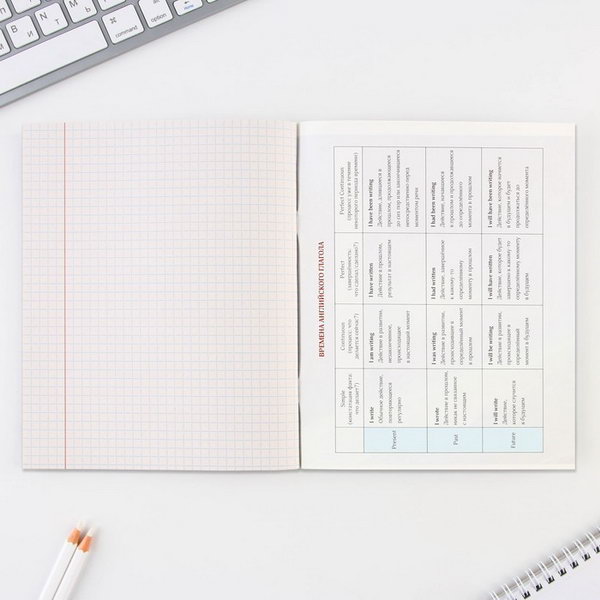 ВРЕМЕНА АНГЛИЙСКОГО ГЛАГОЛА
Simple
(констатация факта:
что делает?)
Continuous
(процесс: что
делается сейчас?)
Perfect
(завершенность:
что сделал/сделано?)
Perfect Continuous
(процесс уже в течение
некоторого периода времени)
Present
I write
Обычное действие,
повторяющееся
регулярно
I am writing
Действие в развитии,
незаконченное,
происходящее
в настоящий момент
I have written
Действие в прошлом,
результат в настоящем
I have been writing
Действие, длившееся в
прошлом, продолжающееся
до сих пор или закончившееся
непосредственно перед
моментом речи
Past
I wrote
Действие в прошлом,
никак не связанное
с настоящим
I was writing
Действие в развитии,
происходившее в
определённый момент
в прошлом
I had written
Действие, завершённое
к какому-то
определённому
моменту в прошлом
I had been writing
Действие, начавшееся
в прошлом и продолжавшееся
до определённого
момента в прошлом
Future
I will write
Действие,
которое случится
в будущем
I will be writing
Действие в развитии,
происходящее в
определённый
момент в будущем
I will have written
Действие, которое будет
завершено к какому-то
определённому моменту
в будущем
I will have been writing
Действие, которое начнется
в будущем и будет
продолжаться до
определённого момента
⌘
command
option